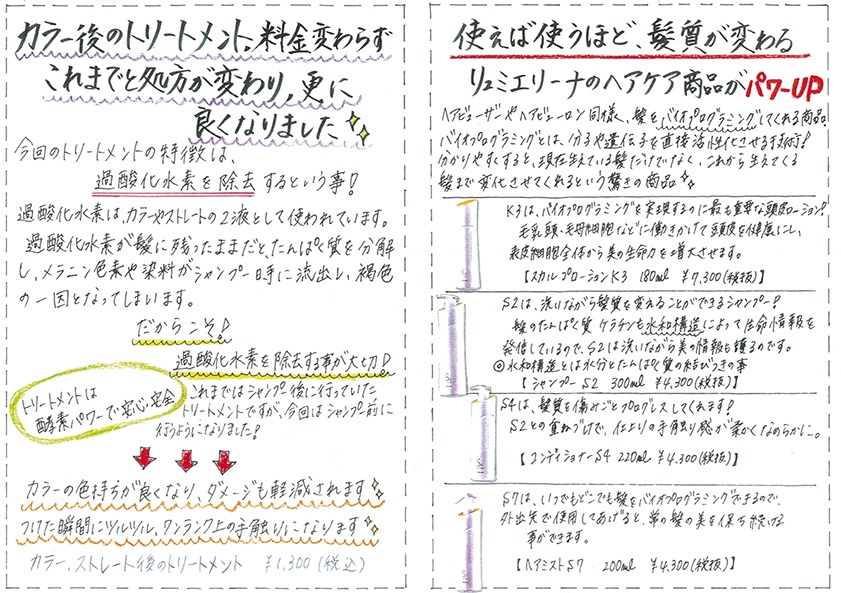 カラー後のトリートメント、料金変わらず
これまでと処方が変わり、更に
良くなりました
今回のトリートメントの特徴は、
過酸化水素を除去するという事!
過酸化水素は、カラーやストレートの2液として使われています。
過酸化水素が髪に残ったままだと、たんぱく質を分解
し、メラニン色素や染料がシャンプー時に流出し、褐色
の一因となってしまいます。
だからこそ!
過酸化水素を除去する事が大切!
トリートメントは
酵素パワーで安心・安全
これまではシャンプー後に行っていた
トリートメントですが、今回はシャンプー前に
行うようになりました!
カラーの色持ちが良くなり、ダメージも軽減されます
つけた瞬間にツルツル、ワンランク上の手触りになります
カラー、ストレート後のトリートメント ¥1,300(税込)
使えば使うほど、髪質が変わる
リュミエリーナのヘアケア商品がパワーUP
ヘアビューザーやヘアビューロン同様、髪をバイオプログラミングしてくれる商品。
バイオプログラミングとは、分子や遺伝子を直接活性化させる技術!
分かりやすくすると、現在生えている髪だけでなく、これから生えてくる
髪まで変化させてくれるという驚きの商品
K3は、バイオプログラミングを実現するのに最も重要な頭皮ローション!
毛乳頭・毛母細胞などに働きかけて頭皮を健康にし、
表皮細胞全体から美の生命力を増大させます。
【スカルプローションK3 180ml ¥7,300(税抜)】
S2は、洗いながら髪質を変えることができるシャンプー!
髪のたんぱく質 ケラチンも水和構造によって生命情報を
発信しているので、S2は洗いながら美の情報も護るのです。
◎水和構造とは水分とたんぱく質の結びつきの事
【シャンプー S2 300ml ¥4,300(税抜)】
S4は、髪質を傷みごとプログレスしてくれます!
S2との重ねづけで、仕上りの手触り感が柔かくなめらかに。
【コンディショナーS4 220ml ¥4,300(税抜)】
S7は、いつでもどこでも髪をバイオプログラミングできるので、
外出先で使用してあげると、常の髪の美を保ち続ける
事ができます。
【ヘアミストS7 200ml ¥4,300(税抜)】